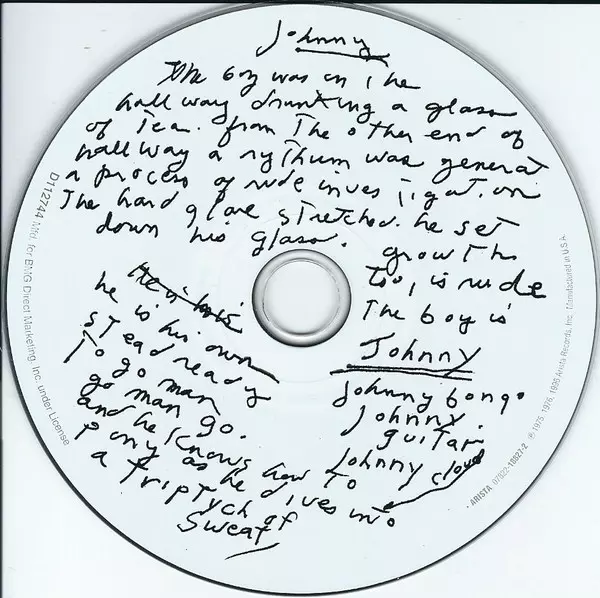 Johnny
The boy was in The
hallway drinking a glass
of Tea. from The other end of
hallway a rythum was generat
a process of rude inves Tigation
The hard glove stretched. he set
down his glass.
growth
too, is rude
The boy is
Johnny
Johnny bongo
Johnny.
guitar
Johnny cloud
He is his
he is his own
stead ready
To go man
go man go.
and he knows how To
pony as he dives into
a Triptych of
Sweat
D112744 Mfd. for BMG Direct Marketing, Inc. under License
• ARISTA 07822-18827-2 ℗ 1975, 1976, 1996 Arista Records, Inc. Manufactured in U.S.A.